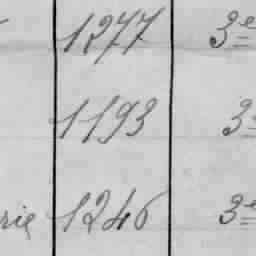 1277 3e
1193 3
rie 1246 3e